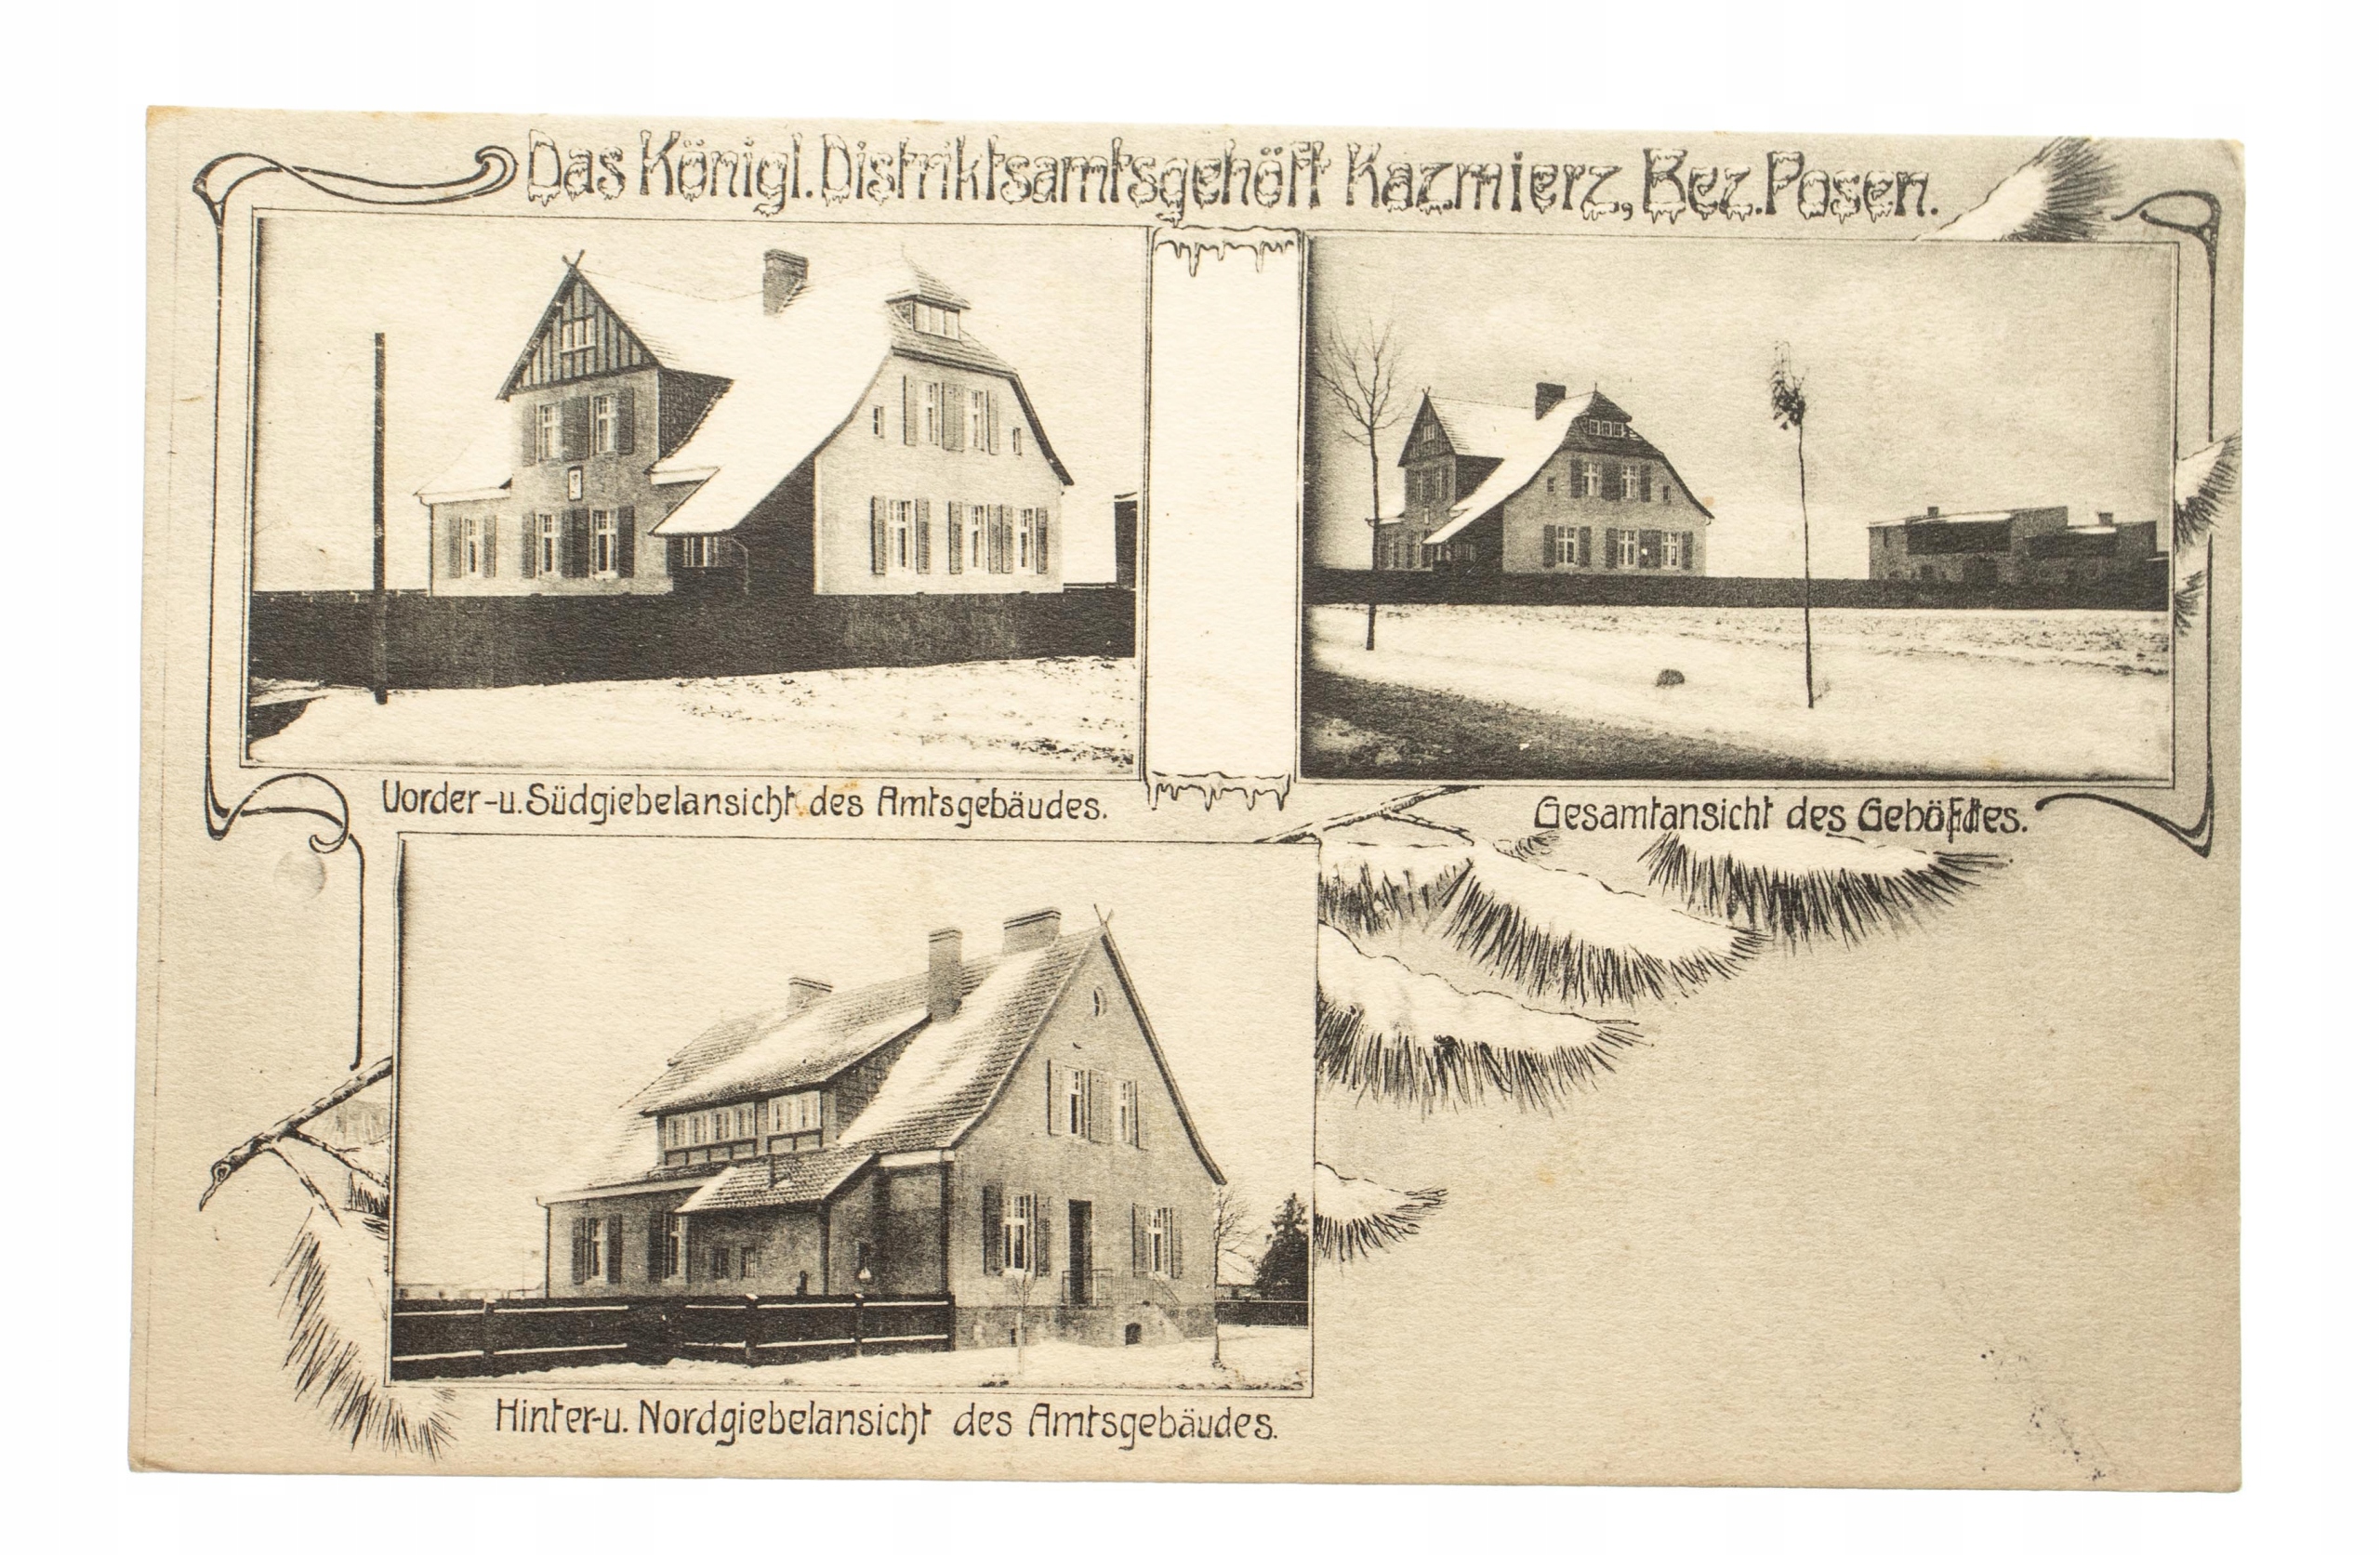 Das Königl. Distriktsamtsgehöft Kazmierz, Bez. Posen.
Vorder-u. Südgiebelansicht des Amtsgebäudes.
Gesamtansicht des Gehöftes.
Hinter-u. Nordgiebelansicht des Amtsgebäudes.